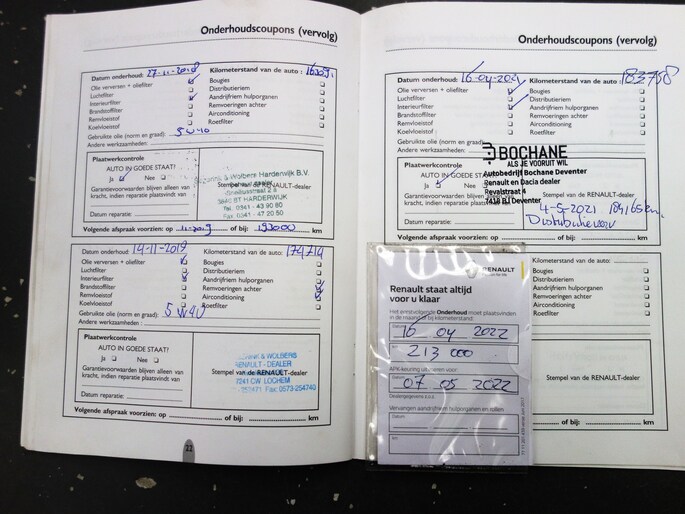 Onderhoudscoupons (vervolg)
Datum onderhoud: 27-11-2018 Kilometerstand van de auto:
Olie verversen + oliefilter Bougies
Luchtfilter Distributieriem
Interieurfilter Aandrijfriem hulporganen
Brandstoffilter Remvoeringen achter
Remvloeistof Airconditioning
Koelvloeistof Roetfilter
Gebruikte olie (norm en graad): 5W40
Andere werkzaamheden:
Plaatwerkcontrole
AUTO IN GOEDE STAAT?
Ja Nee
Garantievoorwaarden blijven alleen van
kracht, indien reparatie plaatsvindt van
Datum reparatie:
& Wolbers Harderwijk B.V.
Stempel van de RENAULT-dealer
HARDERWIJK
Tel. 0341 - 43 90 80
Fax. 0341 - 47 20 50
Volgende afspraak voorzien: op 11-2019 of bij: 193000 km
Datum onderhoud: 14-11-2019 Kilometerstand van de auto: 174714
Olie verversen + oliefilter Bougies
Luchtfilter Distributieriem
Interieurfilter Aandrijfriem hulporganen
Brandstoffilter Remvoeringen achter
Remvloeistof Airconditioning
Koelvloeistof Roetfilter
Gebruikte olie (norm en graad): 5W40
Andere werkzaamheden:
Plaatwerkcontrole
AUTO IN GOEDE STAAT?
Ja Nee
Garantievoorwaarden blijven alleen van
kracht, indien reparatie plaatsvindt van
Datum reparatie:
& WOLBERS
RENAULT - DEALER
Stempel van de RENAULT-dealer
7241 CW LOCHEM
Fax: 0573-254740
Volgende afspraak voorzien: op of bij: km
22
Onderhoudscoupons (vervolg)
Datum onderhoud: 16-04-2021 Kilometerstand van de auto: 183758
Olie verversen + oliefilter Bougies
Luchtfilter Distributieriem
Interieurfilter Aandrijfriem hulporganen
Brandstoffilter Remvoeringen achter
Remvloeistof Airconditioning
Koelvloeistof Roetfilter
Gebruikte olie (norm en graad)
Andere werkzaamheden:
BOCHANE
ALS JE VOORUIT WIL
Autobedrijf Bochane Deventer
Renault en Dacia dealer
Revalstraat 4
Deventer
Plaatwerkcontrole
AUTO IN GOEDE STAAT?
Ja Nee
Garantievoorwaarden blijven alleen van
kracht, indien reparatie plaatsvindt van
Datum reparatie:
Stempel van de RENAULT-dealer
4-5-2021
Volgende afspraak voorzien: op of bij: km
Kilometerstand van de auto:
Bougies
Distributieriem
Aandrijfriem hulporganen
Remvoeringen achter
Airconditioning
Roetfilter
Stempel van de RENAULT-dealer
of bij: km
RENAULT
Renault staat altijd
voor u klaar
Het eerstvolgende Onderhoud moet plaatsvinden
in de maand of bij kilometerstand:
Datum 16 04 2022
Km 213 000
APK-keuring uitvoeren voor:
Datum 07 05 2022
Vervangen aandrijfriem hulporganen en rollen